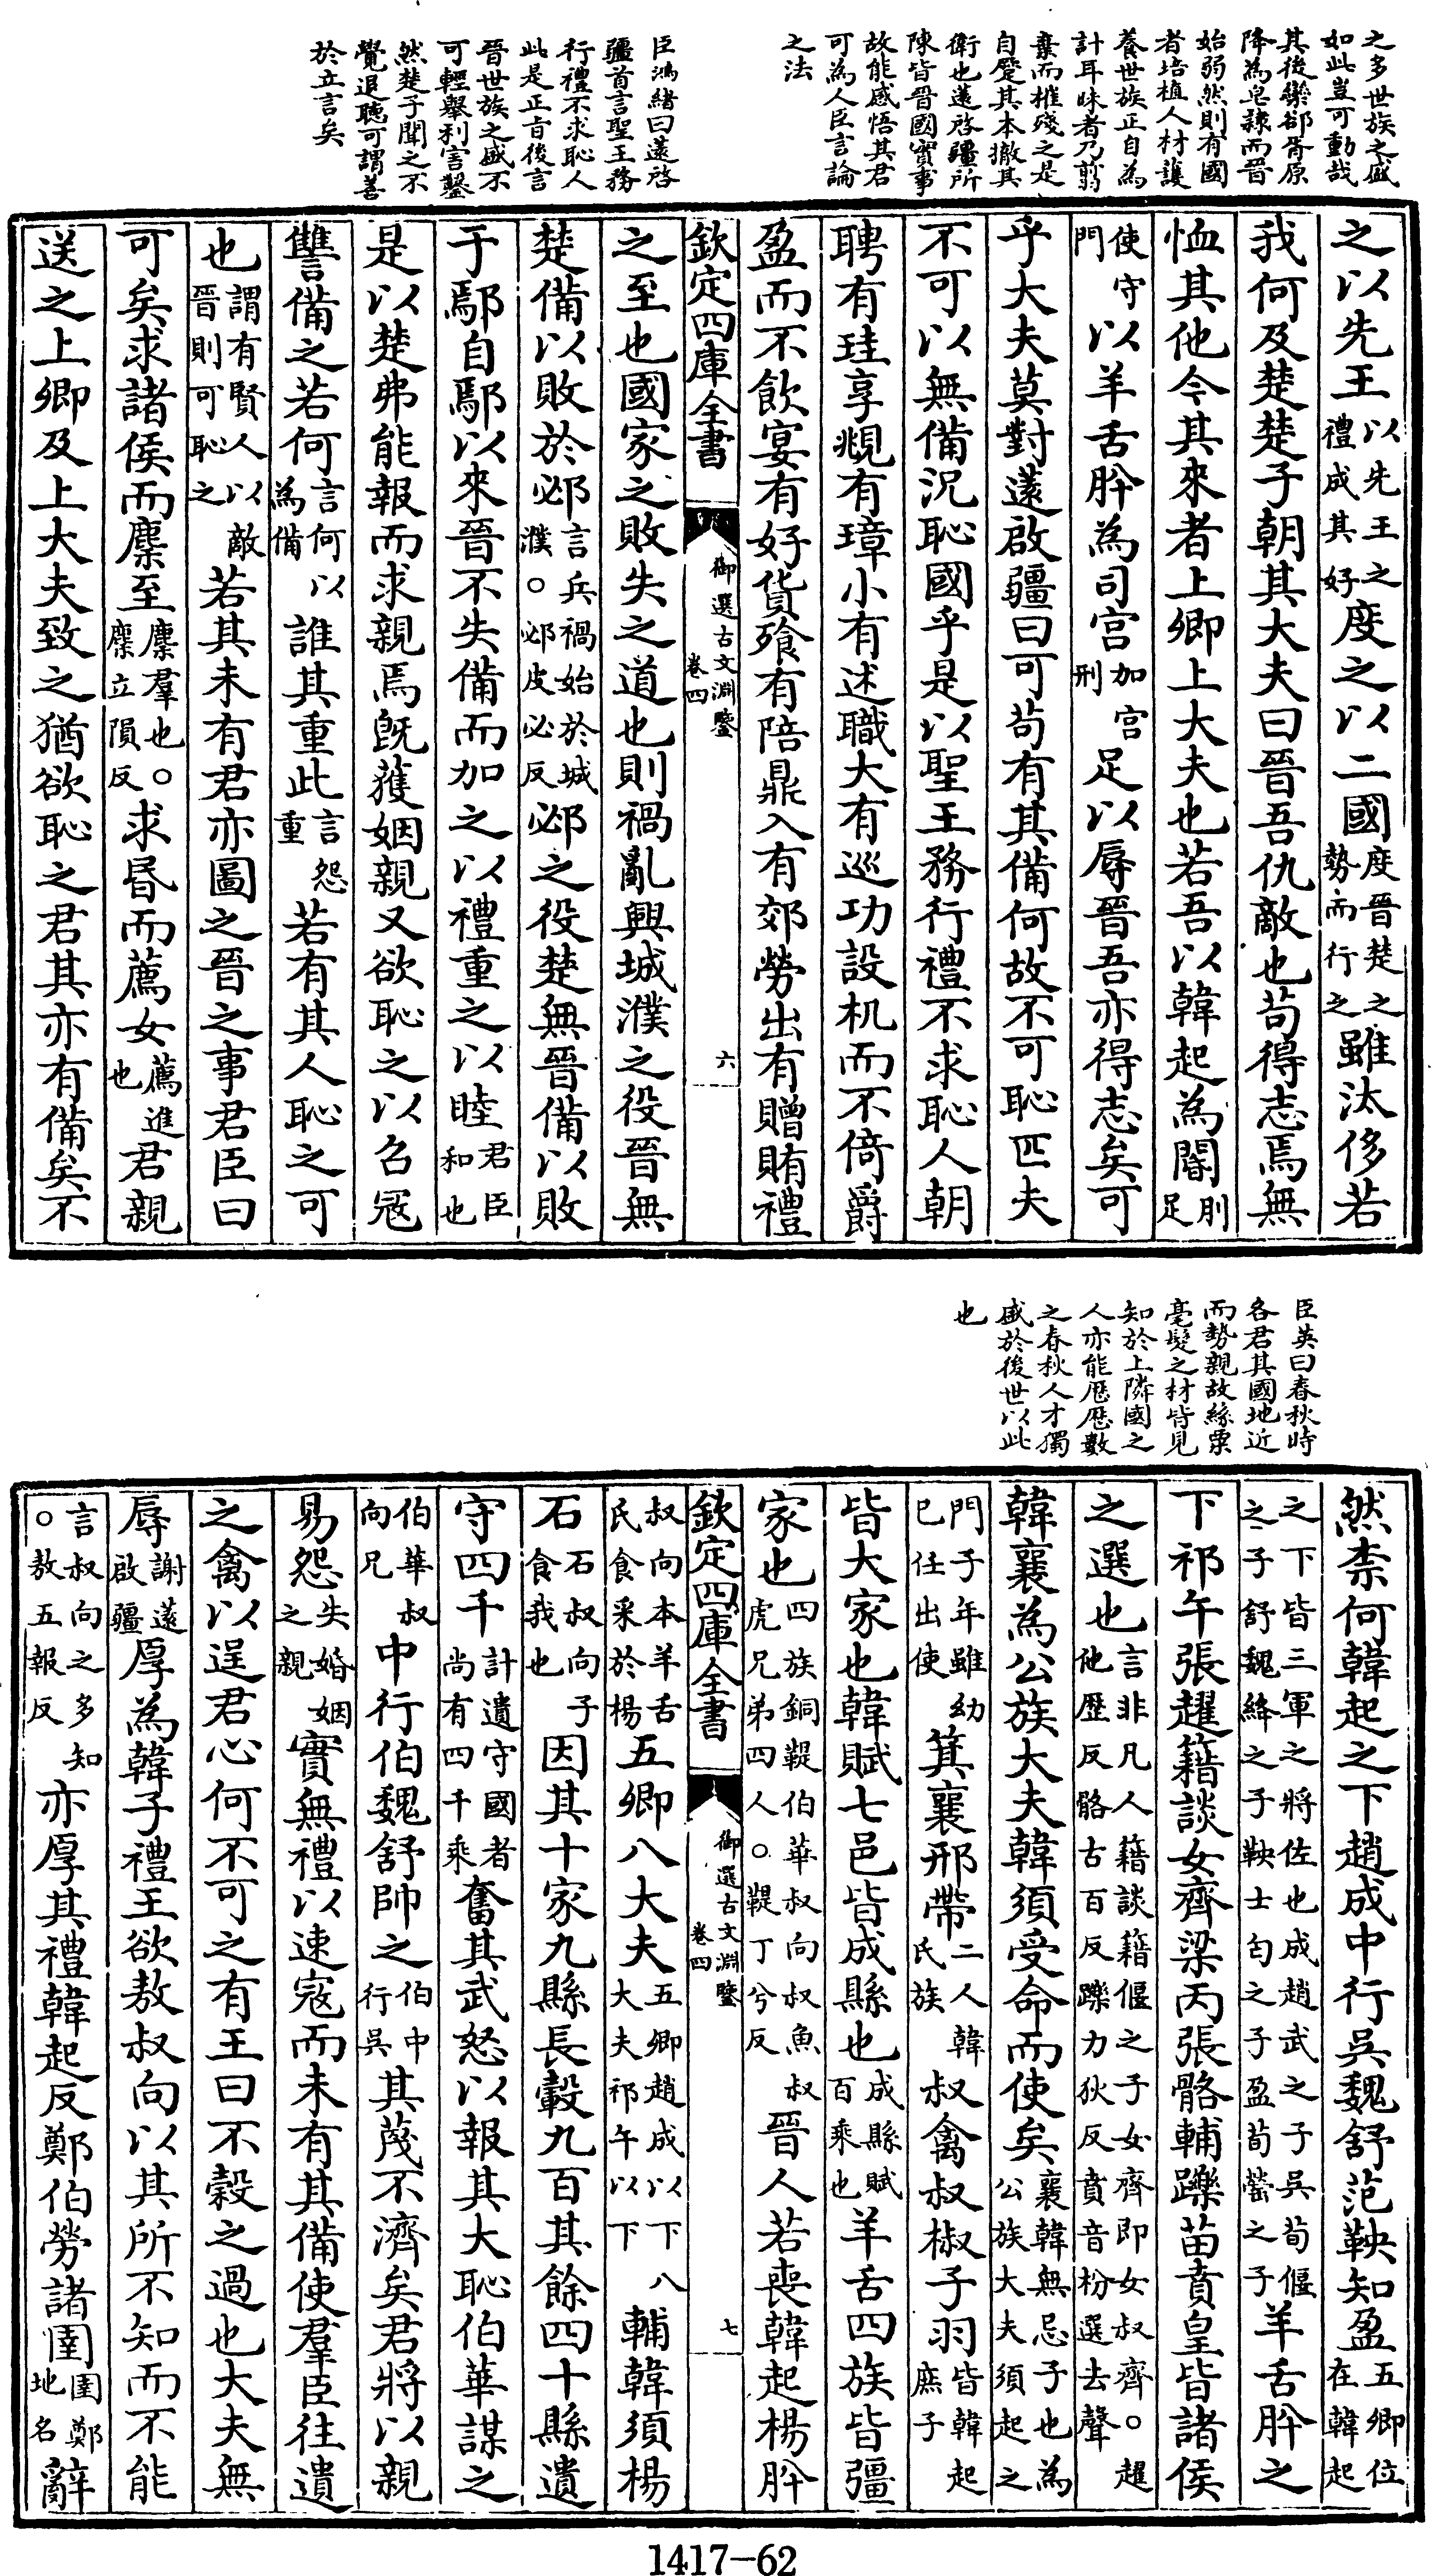 之多世族之盛
如此豈可動哉
其後欒郤胥原
降為皂隸而晉
始弱然則有國
者培植人材護
養世族正自為
計耳昧者乃翦
棄而摧殘之是
自蹷其本撤其
衛也薳啓疆所
陳皆晉國實事
故能感悟其君
可為人臣言論
之法
臣鴻緒曰薳啓
疆首言聖王務
行禮不求恥人
此是正旨後言
晉世族之盛不
可輕舉利害鑿
然楚子聞之不
覺退聽可謂善
於立言矣
之以先王以先王之禮成其好度之以二國度晉楚之勢而行之雖汰侈若
我何及楚楚子朝其大夫曰晉吾仇敵也苟得志焉無
恤其他今其來者上卿上大夫也若吾以韓起為閽刖足
使守門以羊舌肸為司宮加宮刑足以辱晉吾亦得志矣可
乎大夫莫對薳啟疆曰可苟有其備何故不可恥匹夫
不可以無備況恥國乎是以聖王務行禮不求恥人朝
聘有珪享覜有璋小有述職大有巡功設机而不倚爵
盈而不飲宴有好貨飱有陪鼎入有郊勞出有贈賄禮
欽定四庫全書 御選古文淵鑒卷四 六
之至也國家之敗失之道也則禍亂興城濮之役晉無
楚備以敗於邲言兵禍始於城濮。邲皮必反邲之役楚無晉備以敗
于鄢自鄢以來晉不失備而加之以禮重之以睦君臣和也
是以楚弗能報而求親焉旣獲姻親又欲恥之以召寇
讐備之若何言何以為備誰其重此言怨重若有其人恥之可
也謂有賢人以敵晉則可恥之若其未有君亦圖之晉之事君臣曰
可矣求諸侯而麇至麇羣也。麇立隕反求昏而薦女薦進也君親
送之上卿及上大夫致之猶欲恥之君其亦有備矣不
臣英曰春秋時
各君其國地近
而勢親故絲粟
毫髮之材皆見
知於上隣國之
人亦能歷歷數
之春秋人才獨
盛於後世以此
也
然柰何韓起之下趙成中行吳魏舒范鞅知盈五卿位在韓起
之下皆三軍之將佐也成趙武之子吳荀偃之子舒魏絳之子鞅士匄之子盈荀罃之子羊舌肸之
下祁午張趯籍談女齊梁丙張骼輔躒苗賁皇皆諸侯
之選也言非凡人籍談籍偃之子女齊即女叔齊。趯他歷反骼古百反躒力狄反賁音枌選去聲
韓襄為公族大夫韓須受命而使矣襄韓無忌子也為公族大夫須起之
門子年雖幼已任出使箕襄邢帶二人韓氏族叔禽叔椒子羽皆韓起庶子
皆大家也韓賦七邑皆成縣也成縣賦百乘也羊舌四族皆彊
家也四族銅鞮伯華叔向叔魚叔虎兄弟四人。鞮丁兮反晉人若喪韓起楊肸
欽定四庫全書 御選古文淵鑒卷四 七
叔向本羊舌氏食采於楊五卿八大夫五卿趙成以下八大夫祁午以下輔韓須楊
石石叔向子食我也因其十家九縣長轂九百其餘四十縣遺
守四千計遺守國者尚有四千乘奮其武怒以報其大恥伯華謀之
伯華叔向兄中行伯魏舒帥之伯中行吳其蔑不濟矣君將以親
易怨失婚姻之親實無禮以速寇而未有其備使羣臣往遺
之禽以逞君心何不可之有王曰不穀之過也大夫無
辱謝薳啟疆厚為韓子禮王欲敖叔向以其所不知而不能
言叔向之多知。敖五報反亦厚其禮韓起反鄭伯勞諸圉圉鄭地名辭
1417—62